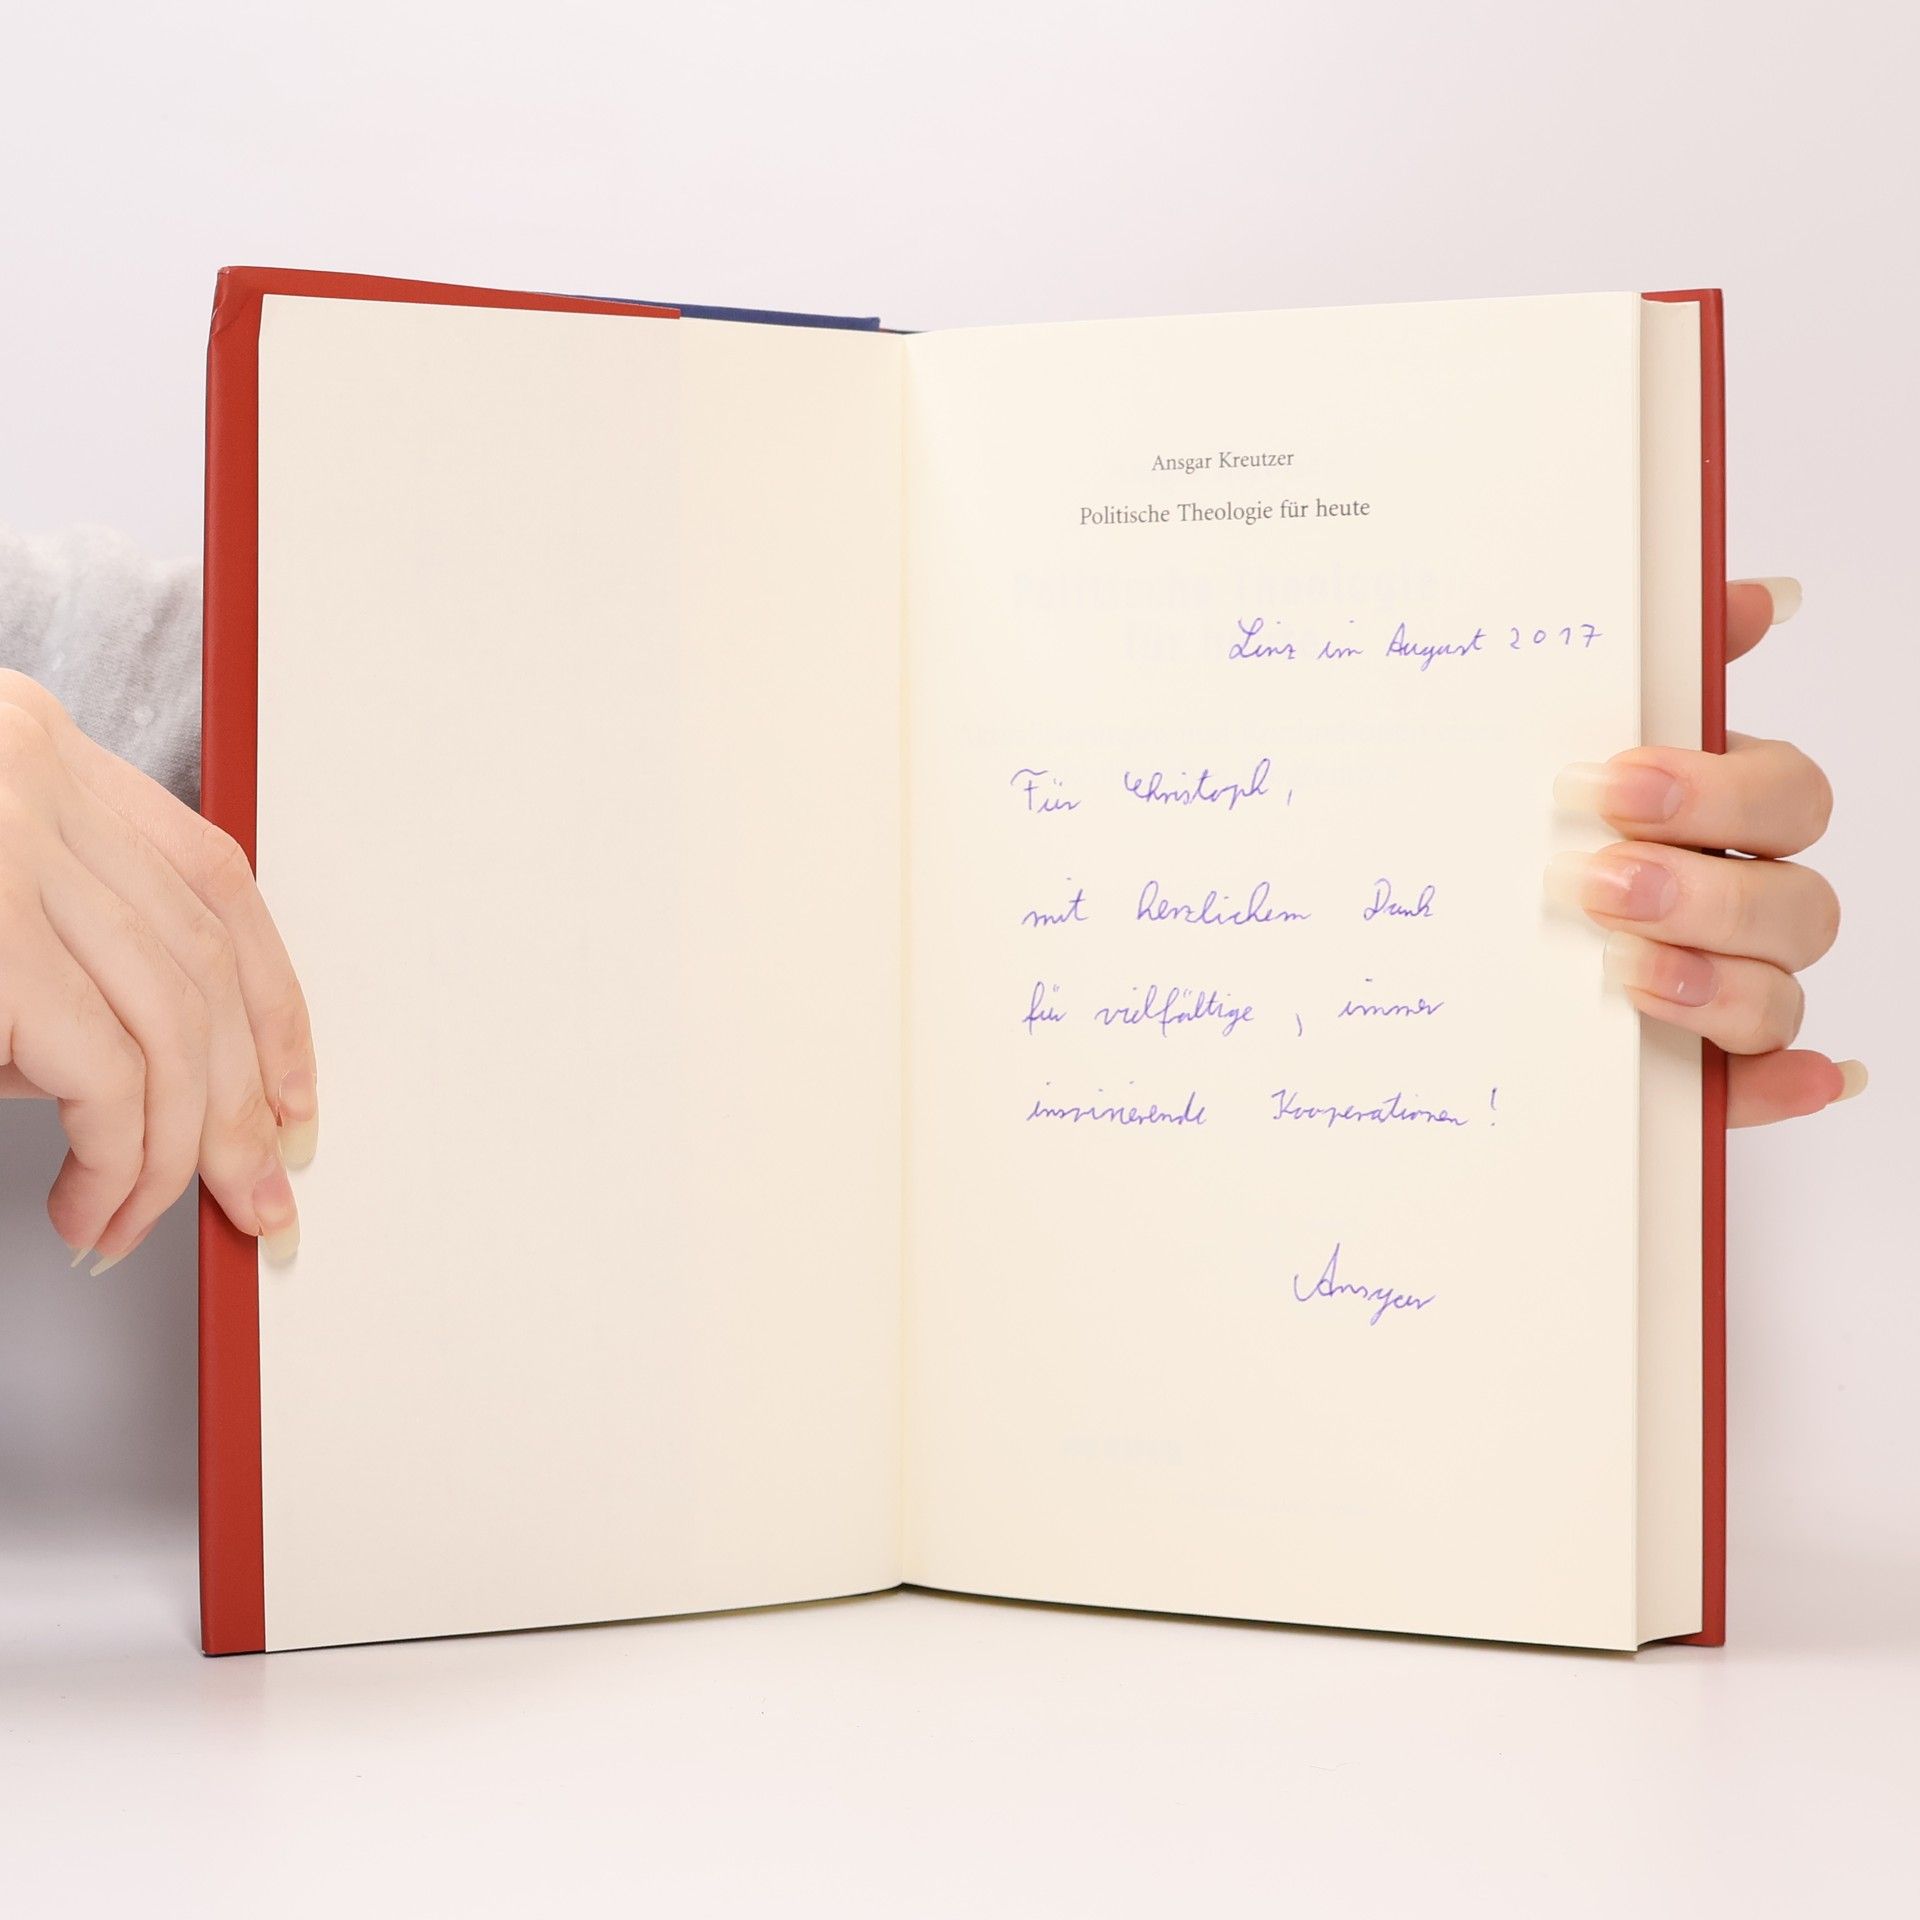 Ansgar Kreutzer
Politische Theologie für heute
Linz im August 2017
Für Christoph,
mit herzlichem Dank
für vielfältige, immer
inspirierende Kooperationen!
Ansgar